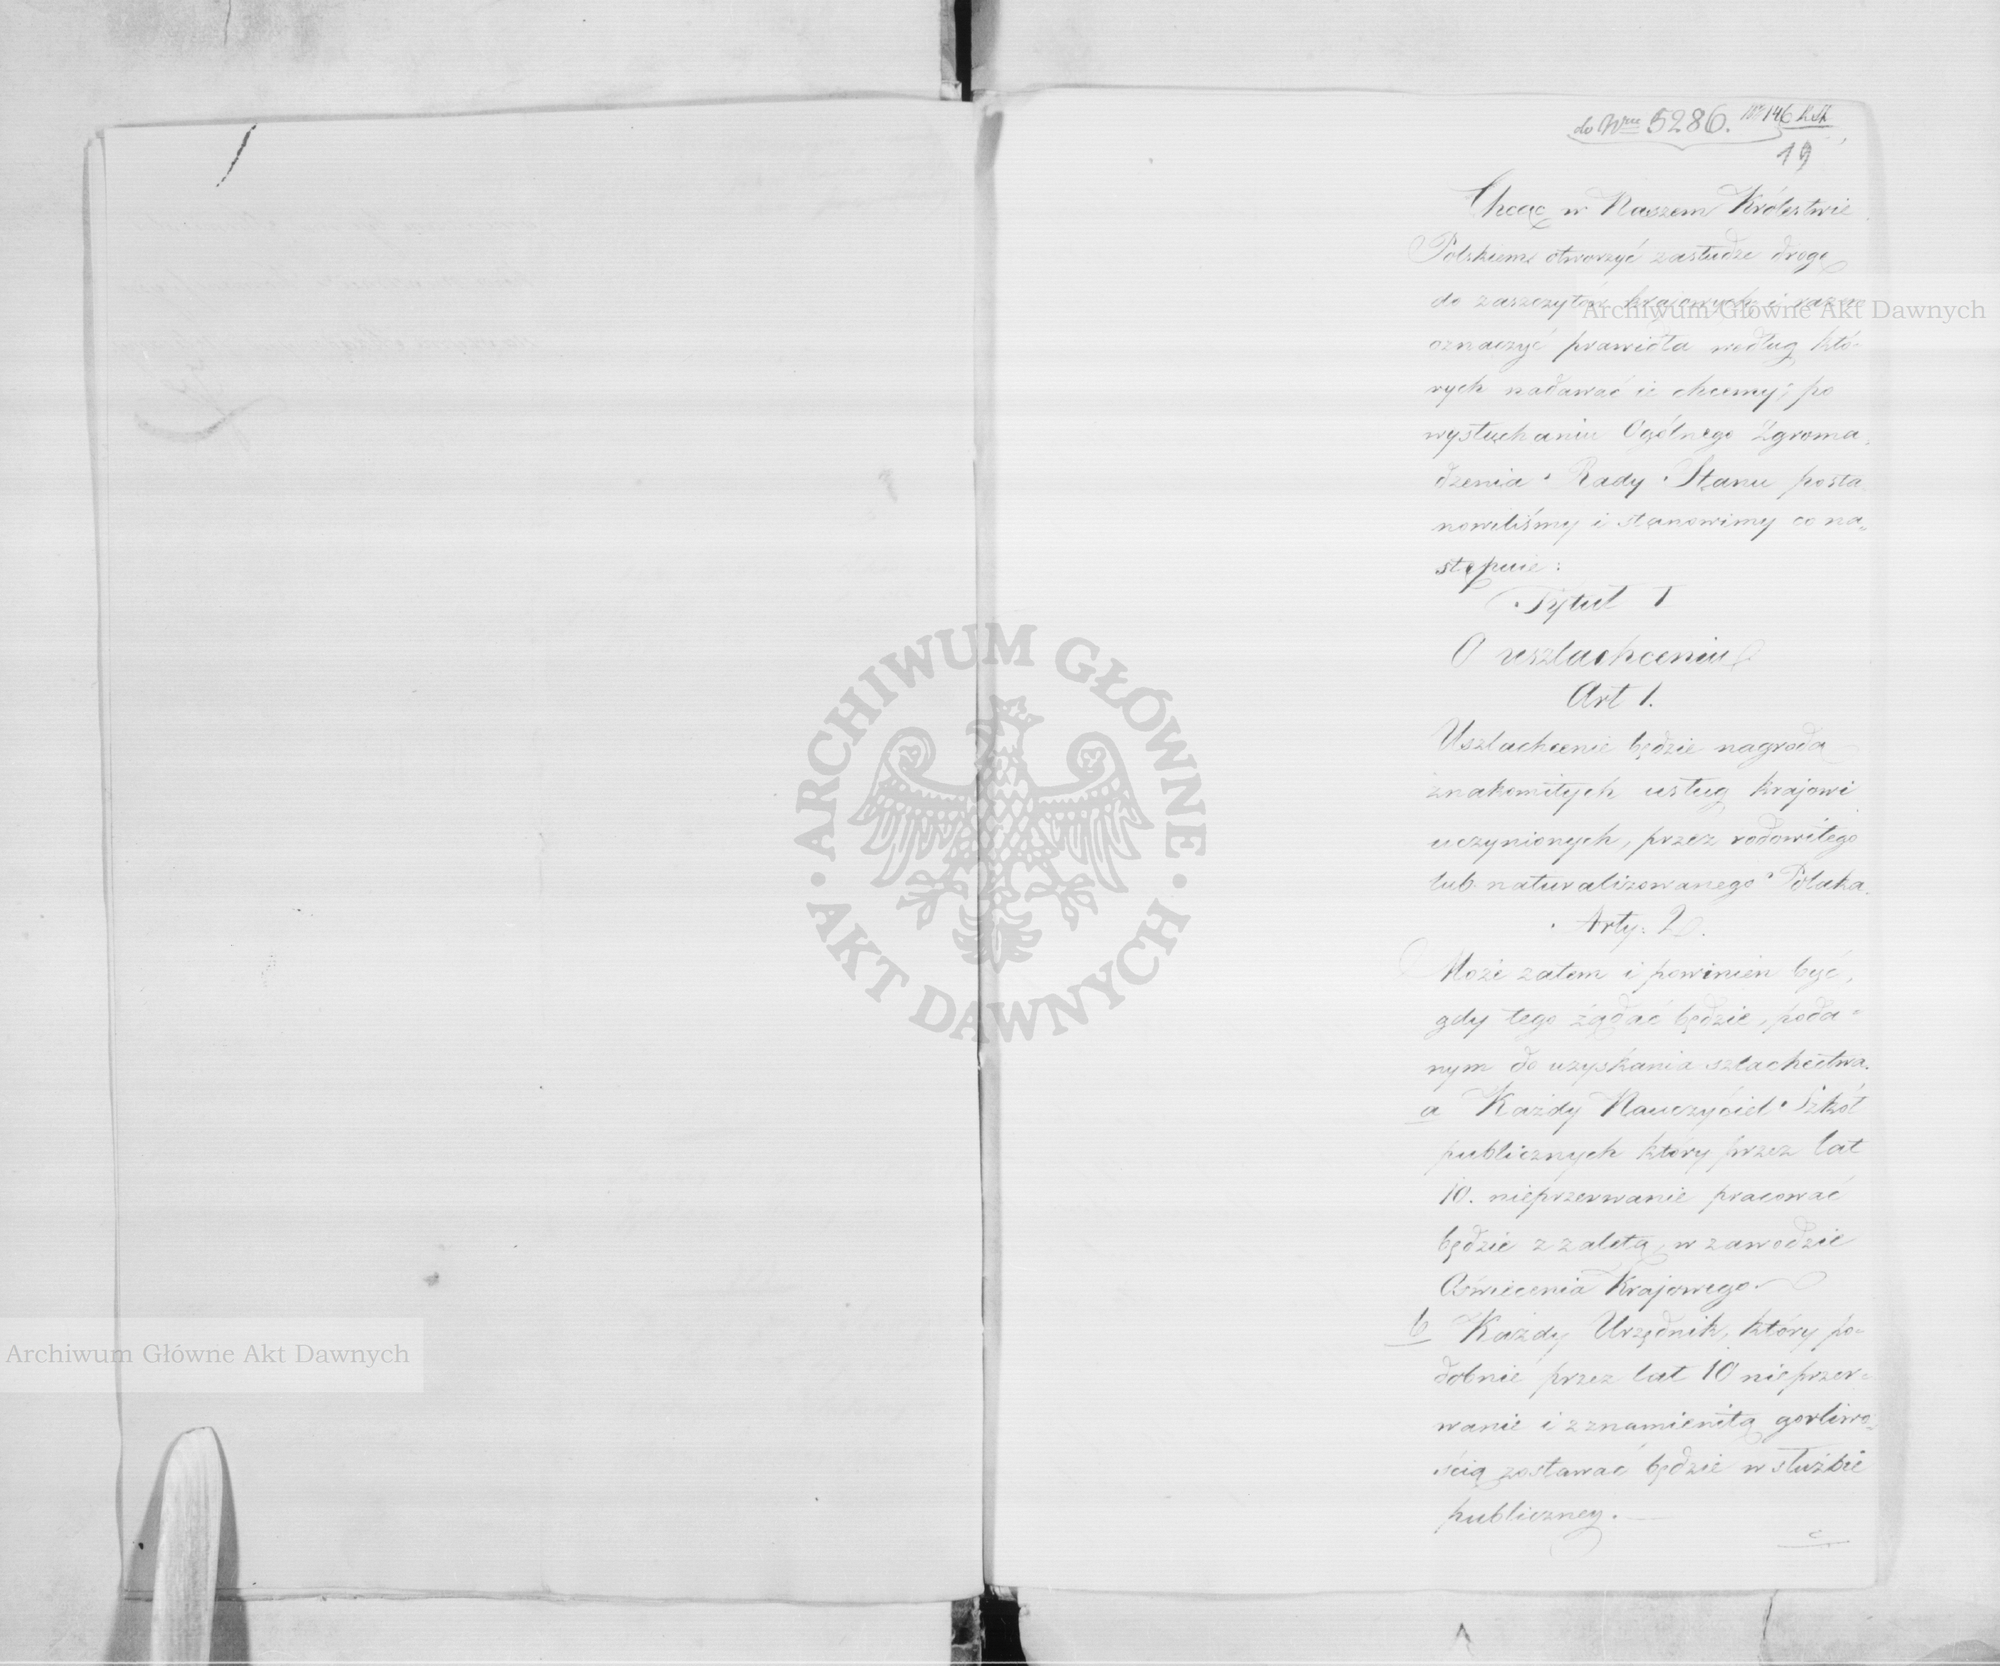 do Nru 5286. 146 R.St.
19
Chcąc w Naszem Królestwie
Polskiem otworzyć zasłudze drogę
do zaszczytów krajowych i razem
oznaczyć prawidła według któ-
rych nadawać ie chcemy; po
wysłuchaniu Ogólnego Zgroma-
dzenia Rady Stanu posta-
nowiliśmy i stanowimy co na-
stępuie:
Tytuł I
O uszlachceniu
Art 1.
Uszlachcenie będzie nagrodą
znakomitych usług krajowi
uczynionych, przez rodowitego
lub naturalizowanego Polaka.
Arty: 2.
Może zatem i powinien być,
gdy tego żądać będzie, poda-
nym do uzyskania szlachectwa.
a Każdy Nauczyciel Szkół
publicznych który przez lat
10. nieprzerwanie pracować
będzie z zaletą w zawodzie
Oświecenia Krajowego.
b Każdy Urzędnik, który po-
dobnie przez lat 10 nieprzer-
wanie i z znamienitą gorliwo-
ścią zostawać będzie w służbie
publiczney.
c
ARCHIWUM GŁÓWNE
AKT DAWNYCH
Archiwum Główne Akt Dawnych
Archiwum Główne Akt Dawnych